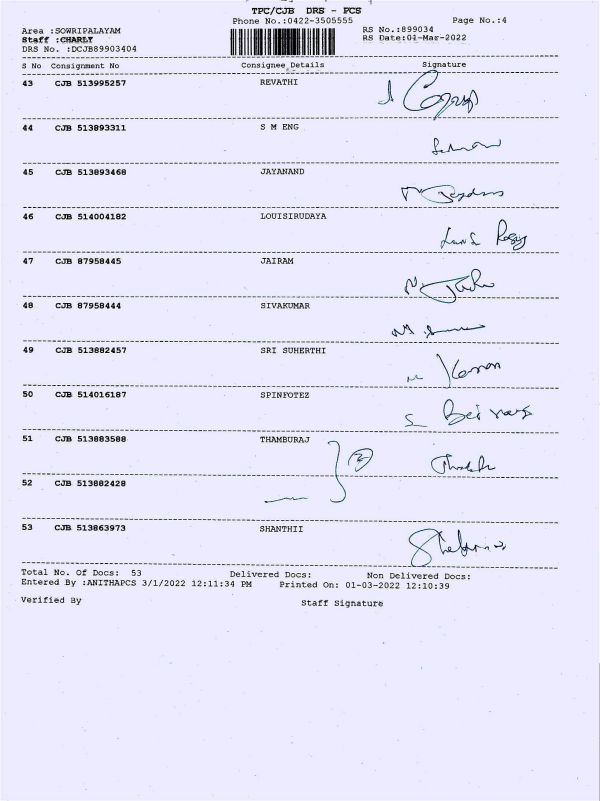 TPC/CJB DRS - PCS
Phone No.:0422-3505555 Page No.:4
Area :SOWRIPALAYAM RS No.:899034
Staff :CHARLY RS Date:01-Mar-2022
DRS No. :DCJB89903404
S No Consignment No Consignee Details Signature
43 CJB 513995257 REVATHI
44 CJB 513893311 S M ENG
45 CJB 513893468 JAYANAND
46 CJB 514004182 LOUISIRUDAYA
47 CJB 87958445 JAIRAM
48 CJB 87958444 SIVAKUMAR
49 CJB 513882457 SRI SUHERTHI
50 CJB 514016187 SPINFOTEZ
51 CJB 513883588 THAMBURAJ
2
52 CJB 513882428
53 CJB 513863973 SHANTHII
Total No. Of Docs: 53 Delivered Docs: Non Delivered Docs:
Entered By :ANITHAPCS 3/1/2022 12:11:34 PM Printed On: 01-03-2022 12:10:39
Verified By Staff Signature